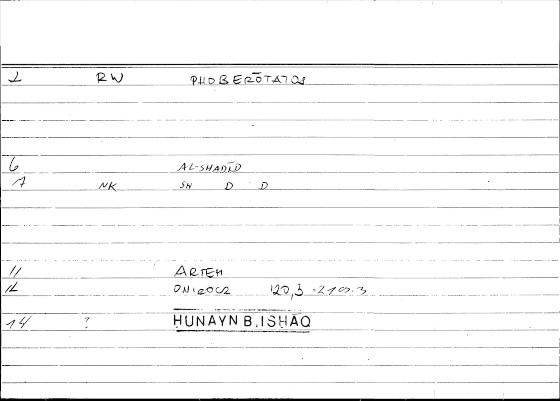 1 RW PHOBERŌTATOS
6 AL-SHADĪD
7 NK SH D D
11 ARTEM
12 ONIROCR 120,3 -210.3
14 ? HUNAYN B. ISHĀQ